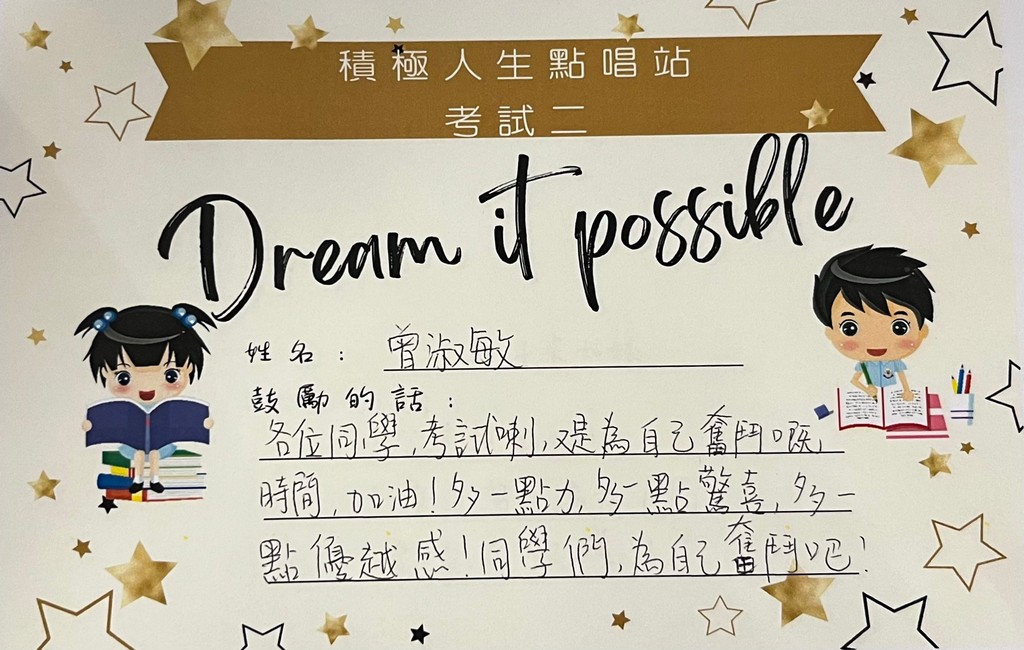 積極人生點唱站
考試二
Dream it possible
姓名：曾淑敏
鼓勵的話：
各位同學，考試喇，又是為自己奮鬥嘅
時間，加油！多一點力，多一點驚喜，多一
點優越感！同學們，為自己奮鬥吧！